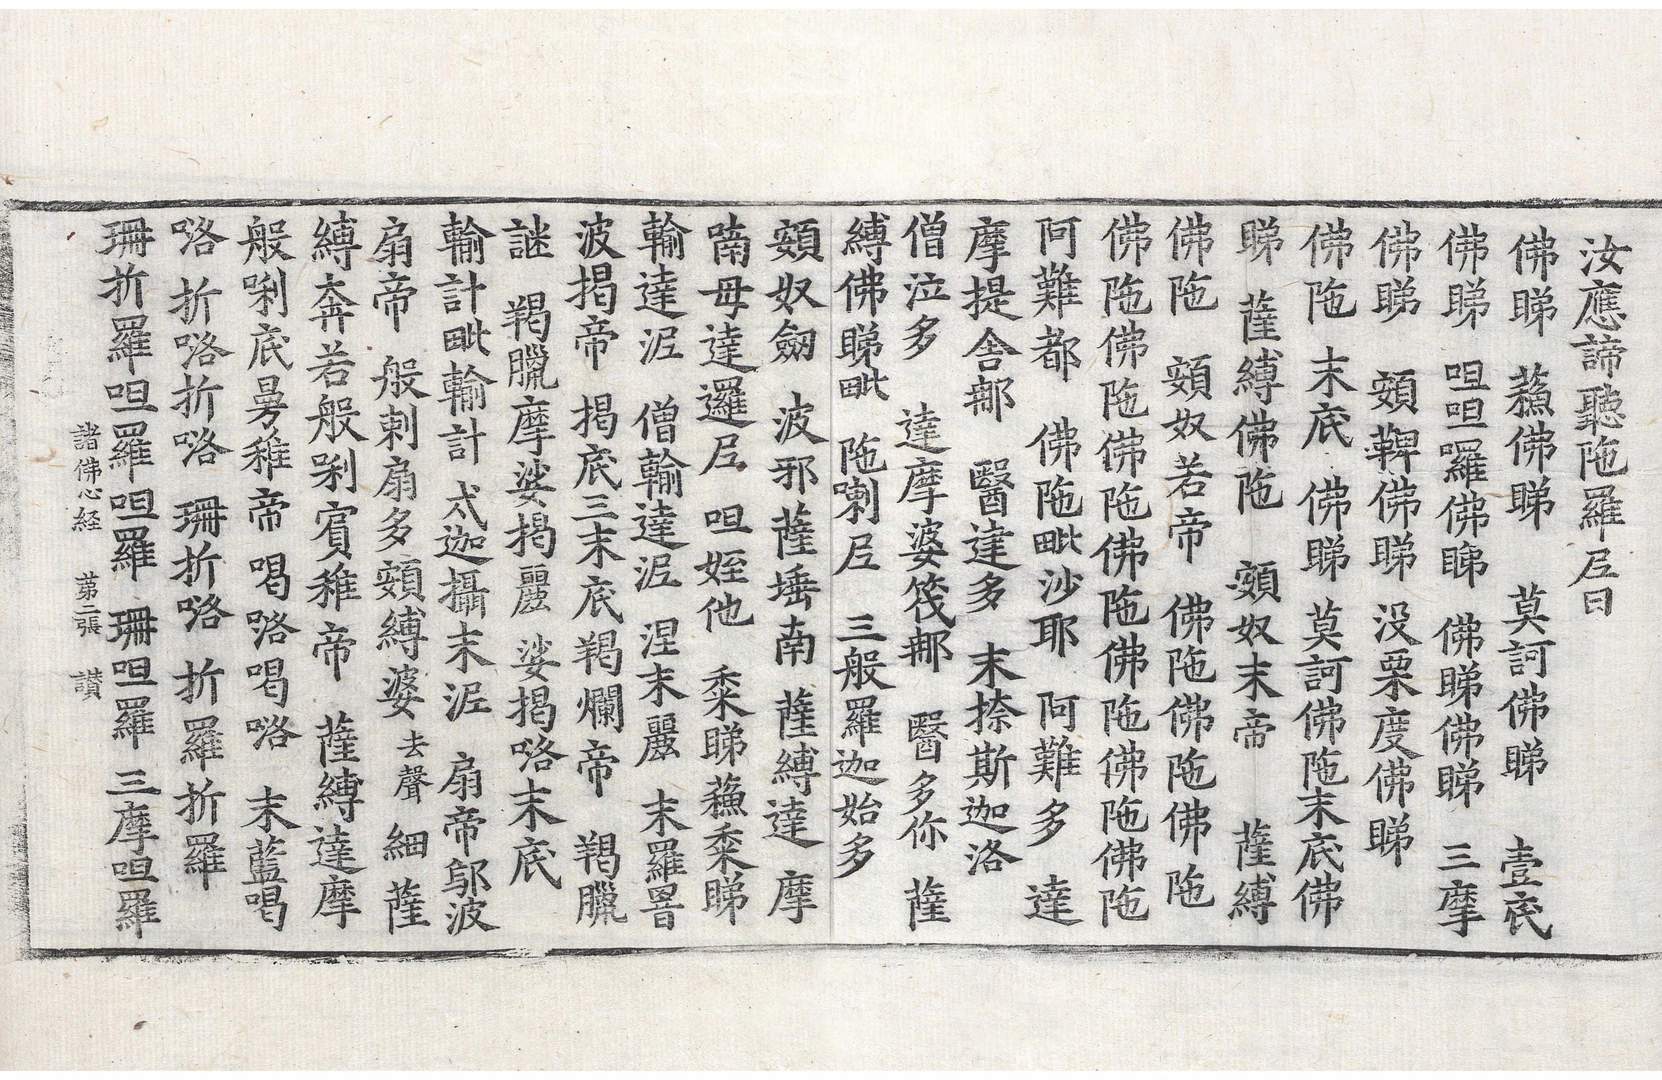 汝應諦聽陁羅尼曰
佛睇 蘓佛睇 莫訶佛睇 壹底
佛睇 呾呾囉佛睇 佛睇佛睇 三摩
佛睇 頞鞞佛睇 没栗度佛睇
佛陁 末底 佛睇 莫訶佛陁末底佛
睇 薩縛佛陁 頞奴末帝 薩縛
佛陁 頞奴若帝 佛陁佛陁佛陁
佛陁佛陁佛陁佛陁佛陁佛陁佛陁
阿難都 佛陁毗沙耶 阿難多 達
摩提舍䣍 醫達多 末捺斯迦洛
僧泣多 達摩婆筏䣍 醫多你 薩
縛佛睇毗 陁喇尼 三般羅迦始多
頞奴劒 波邪薩埵南 薩縛達 摩
喃毋達邏尼 呾姪他 黍睇蘓黍睇
輸達泥 僧輸達泥 涅末麗 末羅詈
波揭帝 揭底三末底羯爛帝 羯臘
謎 羯臘摩娑揭麗 娑揭咯末底
輸計毗輸計 弌迦攝末泥 扇帝鄔波
扇帝 般剌扇多頞縛婆去聲 細 薩
縛奔若般剁賓稚帝 薩縛達摩
般唎底曼稚帝 喝咯喝咯 末藍喝
咯 折咯折咯 珊折咯 折羅折羅
珊折羅呾羅呾羅 珊呾羅 三摩呾羅
諸佛心経 苐二張 讃